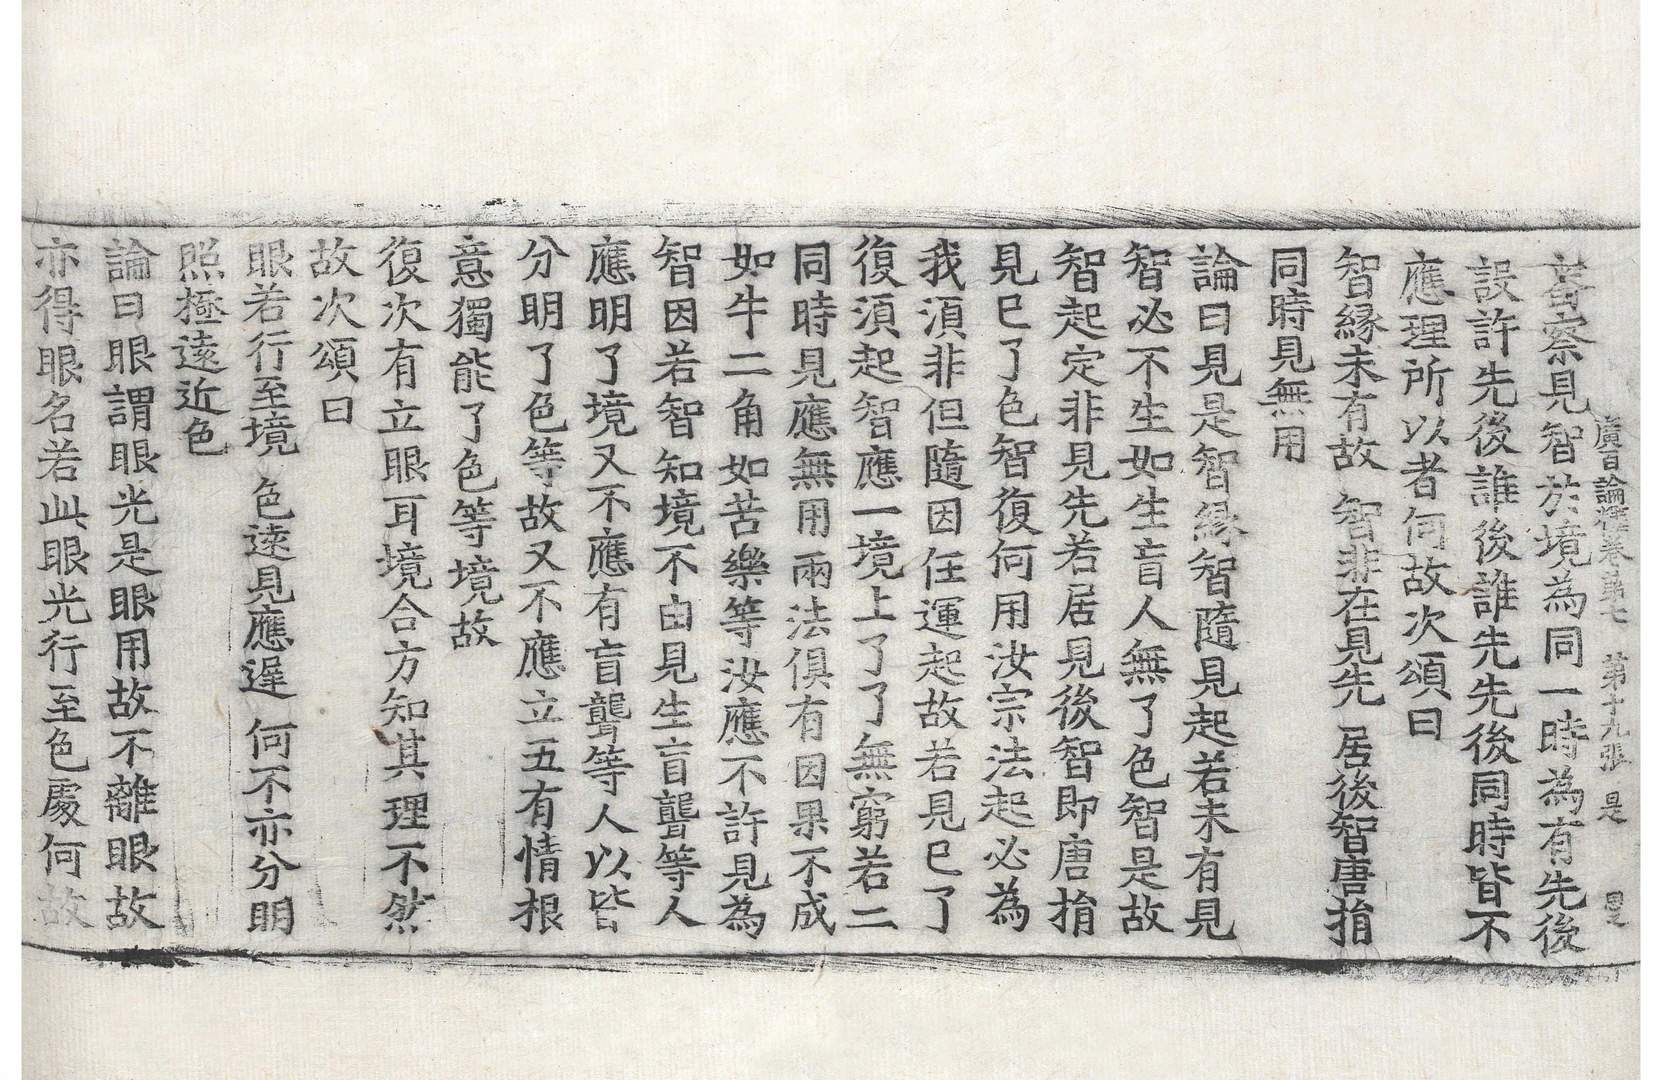 廣百論釋卷第七　第十九張　是
審察見智於境為同一時為有先後
設許先後誰後誰先先後同時皆不
應理所以者何故次頌曰
智緣未有故　智非在見先　居後智唐捐
同時見無用
論曰見是智緣智隨見起若未有見
智必不生如生盲人無了色智是故
智起定非見先若居見後智即唐捐
見已了色智復何用汝宗法起必為
我須非但隨因任運起故若見已了
復須起智應一境上了了無窮若二
同時見應無用兩法俱有因果不成
如牛二角如苦樂等汝應不許見為
智因若智知境不由見生盲聾等人
應明了境又不應有盲聾等人以皆
分明了色等故又不應立五有情根
意獨能了色等境故
復次有立眼耳境合方知其理不然
故次頌曰
眼若行至境　色遠見應遲　何不亦分明
照極遠近色
論曰眼謂眼光是眼用故不離眼故
亦得眼名若此眼光行至色處何故